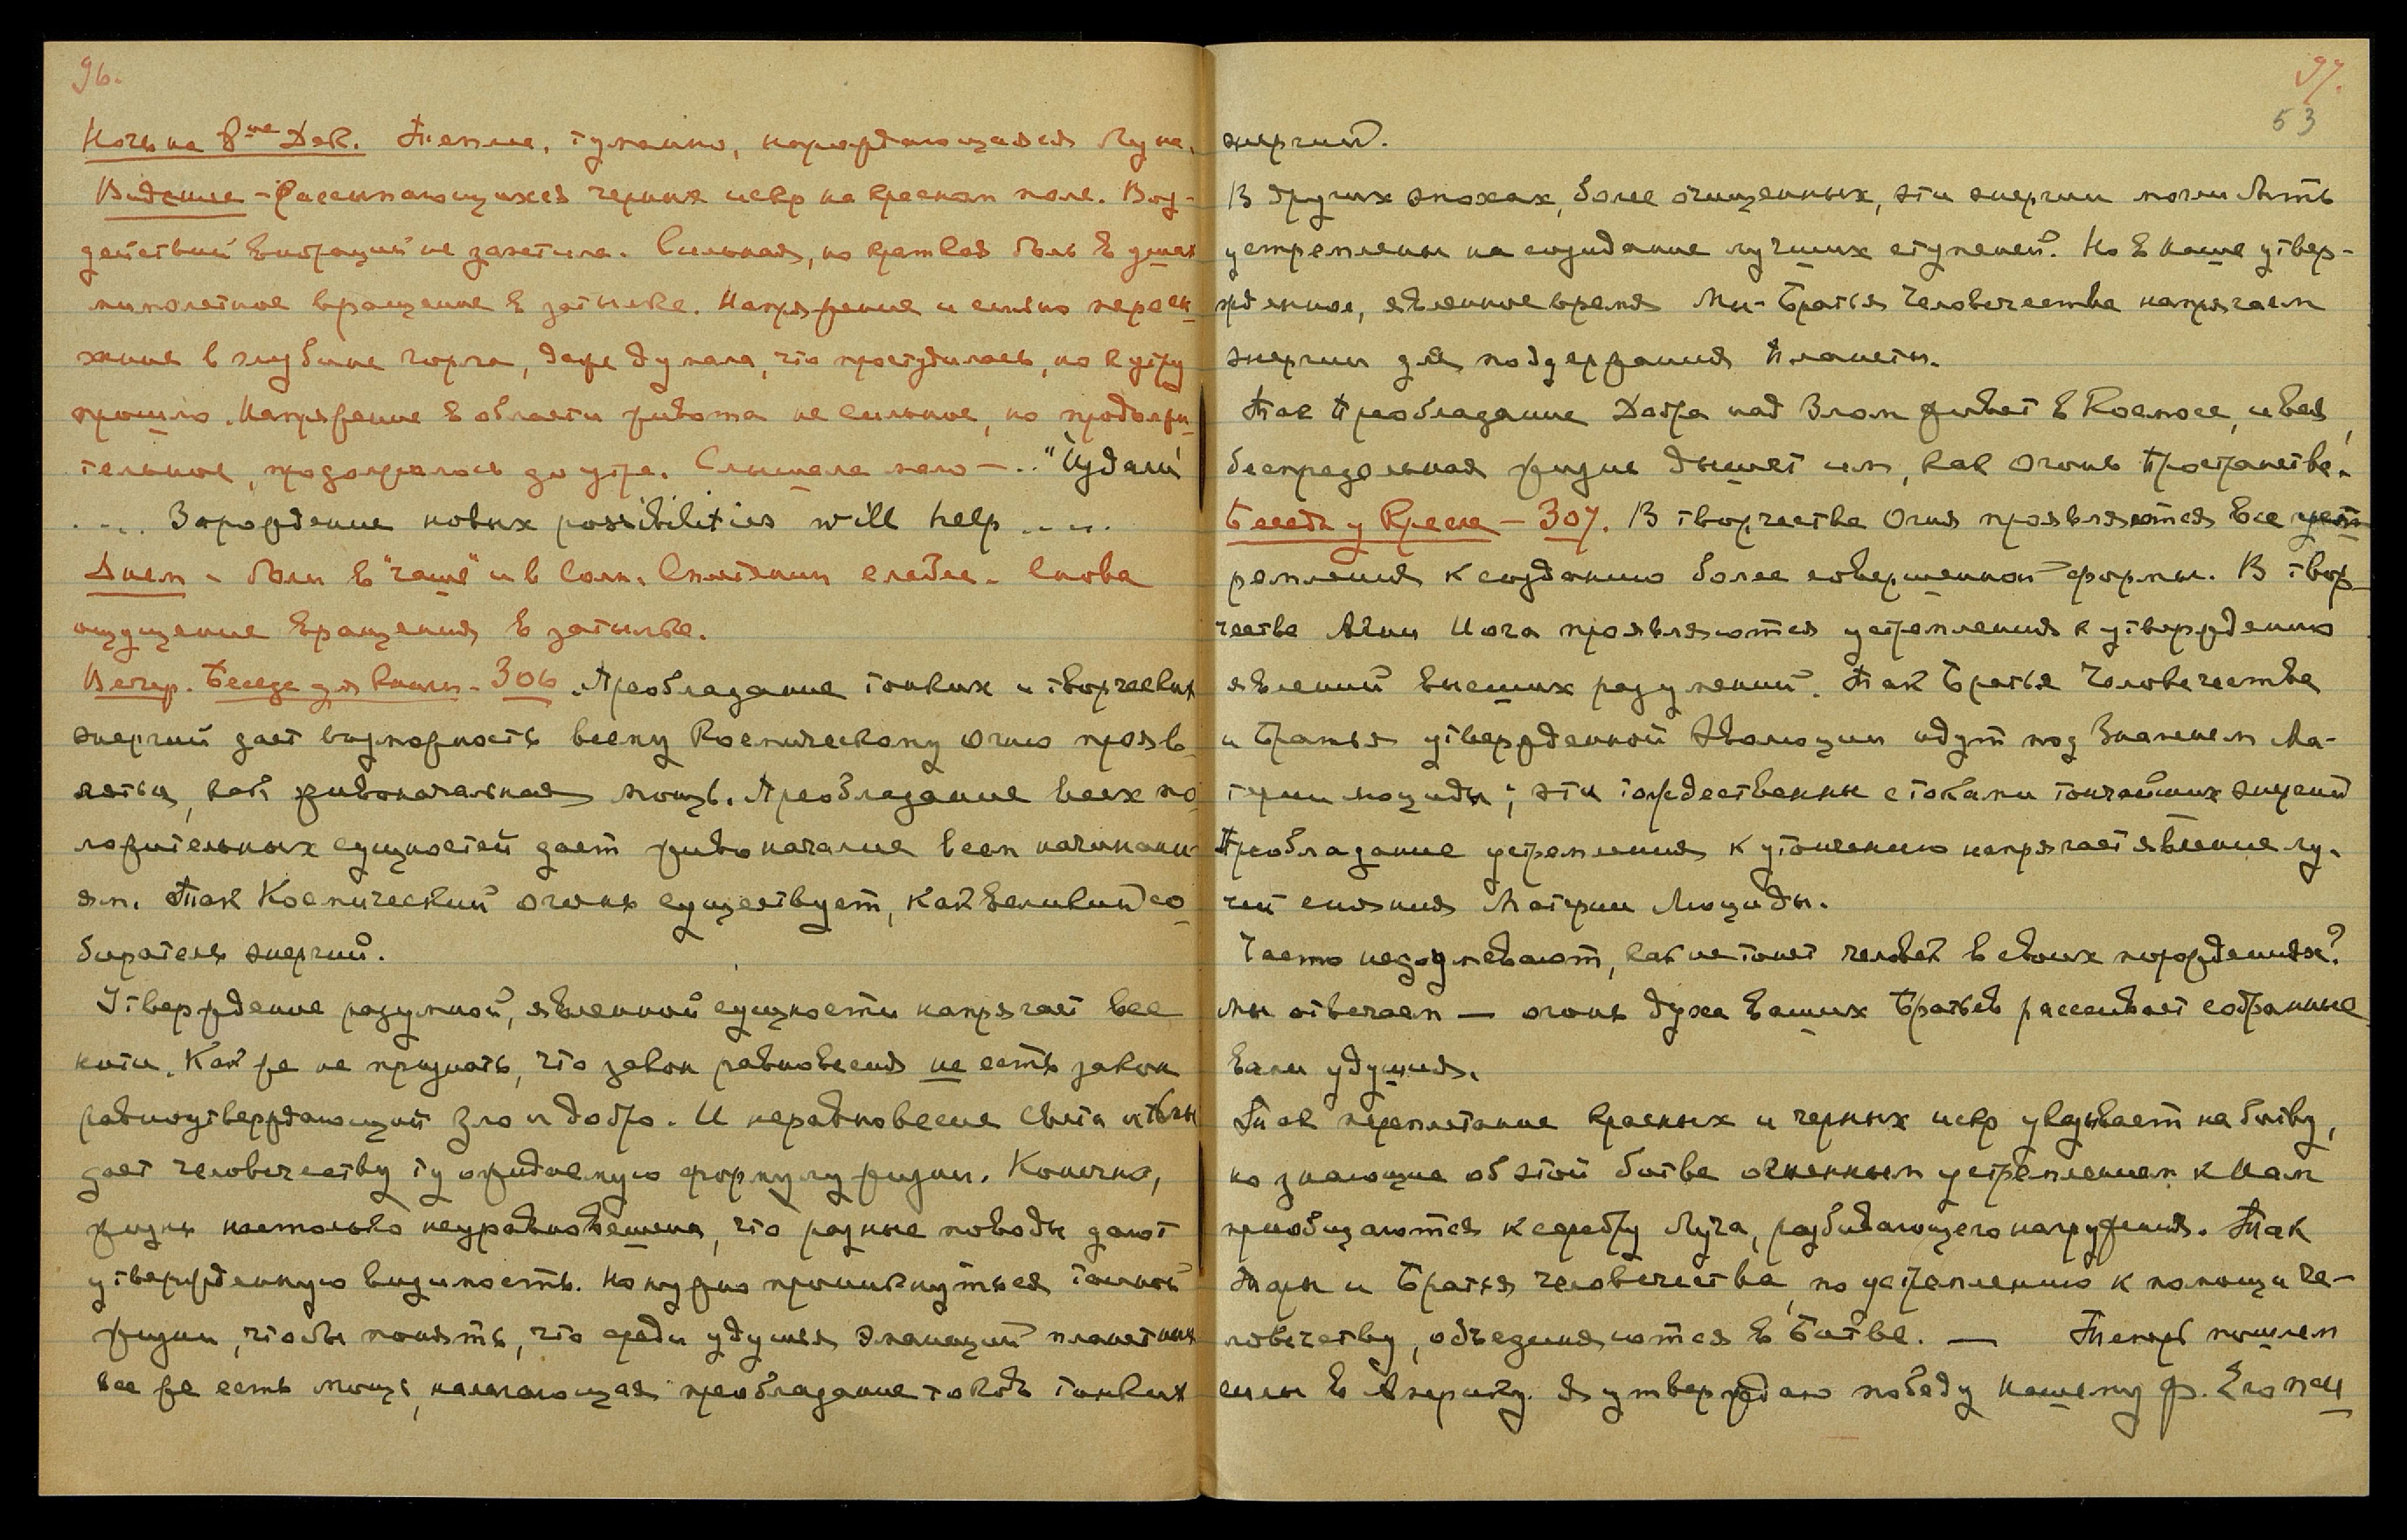 96.
Ночь на 8ое Дек. Теплые, туманно, нарождающаяся Луна.
Видение – Рассыпающихся черных искр на красном поле. Воз-
действий вибраций не заметила. Сильная, но краткая боль в ушах
мимолетное вращение в затылке. Напряжение и сильно пересы-
хание в глубине горла, даже думала, что простудилась, но к утру
прошло. Напряжение в области живота не сильное, но продолжи-
тельное, продолжалось до утра. Слышала мало – .. "Иудали
.... Зарождение новых possibilities will help ....
Днем – боли в "чаше" и в Солн. Сплетении слабее. Снова
ощущение вращения в затылке.
Вечер. Беседа для Книги – 306. Преобладание тонких и творческих
энергий дает возможность всему Космическому огню прояв-
ляться, как живоначальная мощь. Преобладание всех по-
ложительных сущностей дает живоначалие всем начинани-
ям. Так Космический огонь существует, как великий со-
биратель энергий.
Утверждение разумной, явленной сущности напрягает все
нити. Как же не признать, что закон равновесия не есть закон
равноутверждающий зло и добро. И неравновесие Света и тьмы
дает человечеству ту ожидаемую формулу жизни. Конечно,
жизнь настолько неуравновешена, что разные поводы дают
утвержденную видимость. Но нужно проникнуться тайной
жизни, чтобы понять, что среди удушья эманаций планетных
все же есть мощь, налагающая преобладание токов тонких
97.
53
энергий.
В других эпохах, более очищенных, эти энергии могли быть
устремлены на созидание лучших ступеней. Но в наше утвер-
жденное, явленное время Мы – Братья Человечества напрягаем
энергии для поддержания планеты.
Так Преобладание Добра над Злом живет в Космосе, и вся
беспредельная жизнь дышет им, как Огонь Пространства.
Беседа у Кресла – 307. В творчестве Огня проявляются все уст-
ремления к созданию более совершенной формы. В твор-
честве Агни Йога проявляются устремления к утверждению
явлений высших разумений. Так Братья Человечества
и Братья утвержденной Эволюции идут под Знаменем Ма-
терии люциды; эти тождественны с токами тончайших энергий
Преобладание устремления к утончению напрягает явление лу-
чей сияния Материи Люциды.
Часто недоумевают, как не тонет человек в своих порождениях?
Мы отвечаем – огонь духа Ваших Братьев рассеивает собранные
вами удушия.
Так переплетание красных и черных искр указывает на битву,
но знающие об этой битве огненным устремлением к Нам
приобщаются к серебру Луча, разбивающего нагружения. Так
Тары и Братья Человечества, по устремлению к помощи че-
ловечеству, объединяются в Битве. – Теперь пошлем
силы в Америку. Я утверждаю победу Нашему Ф. Его пси